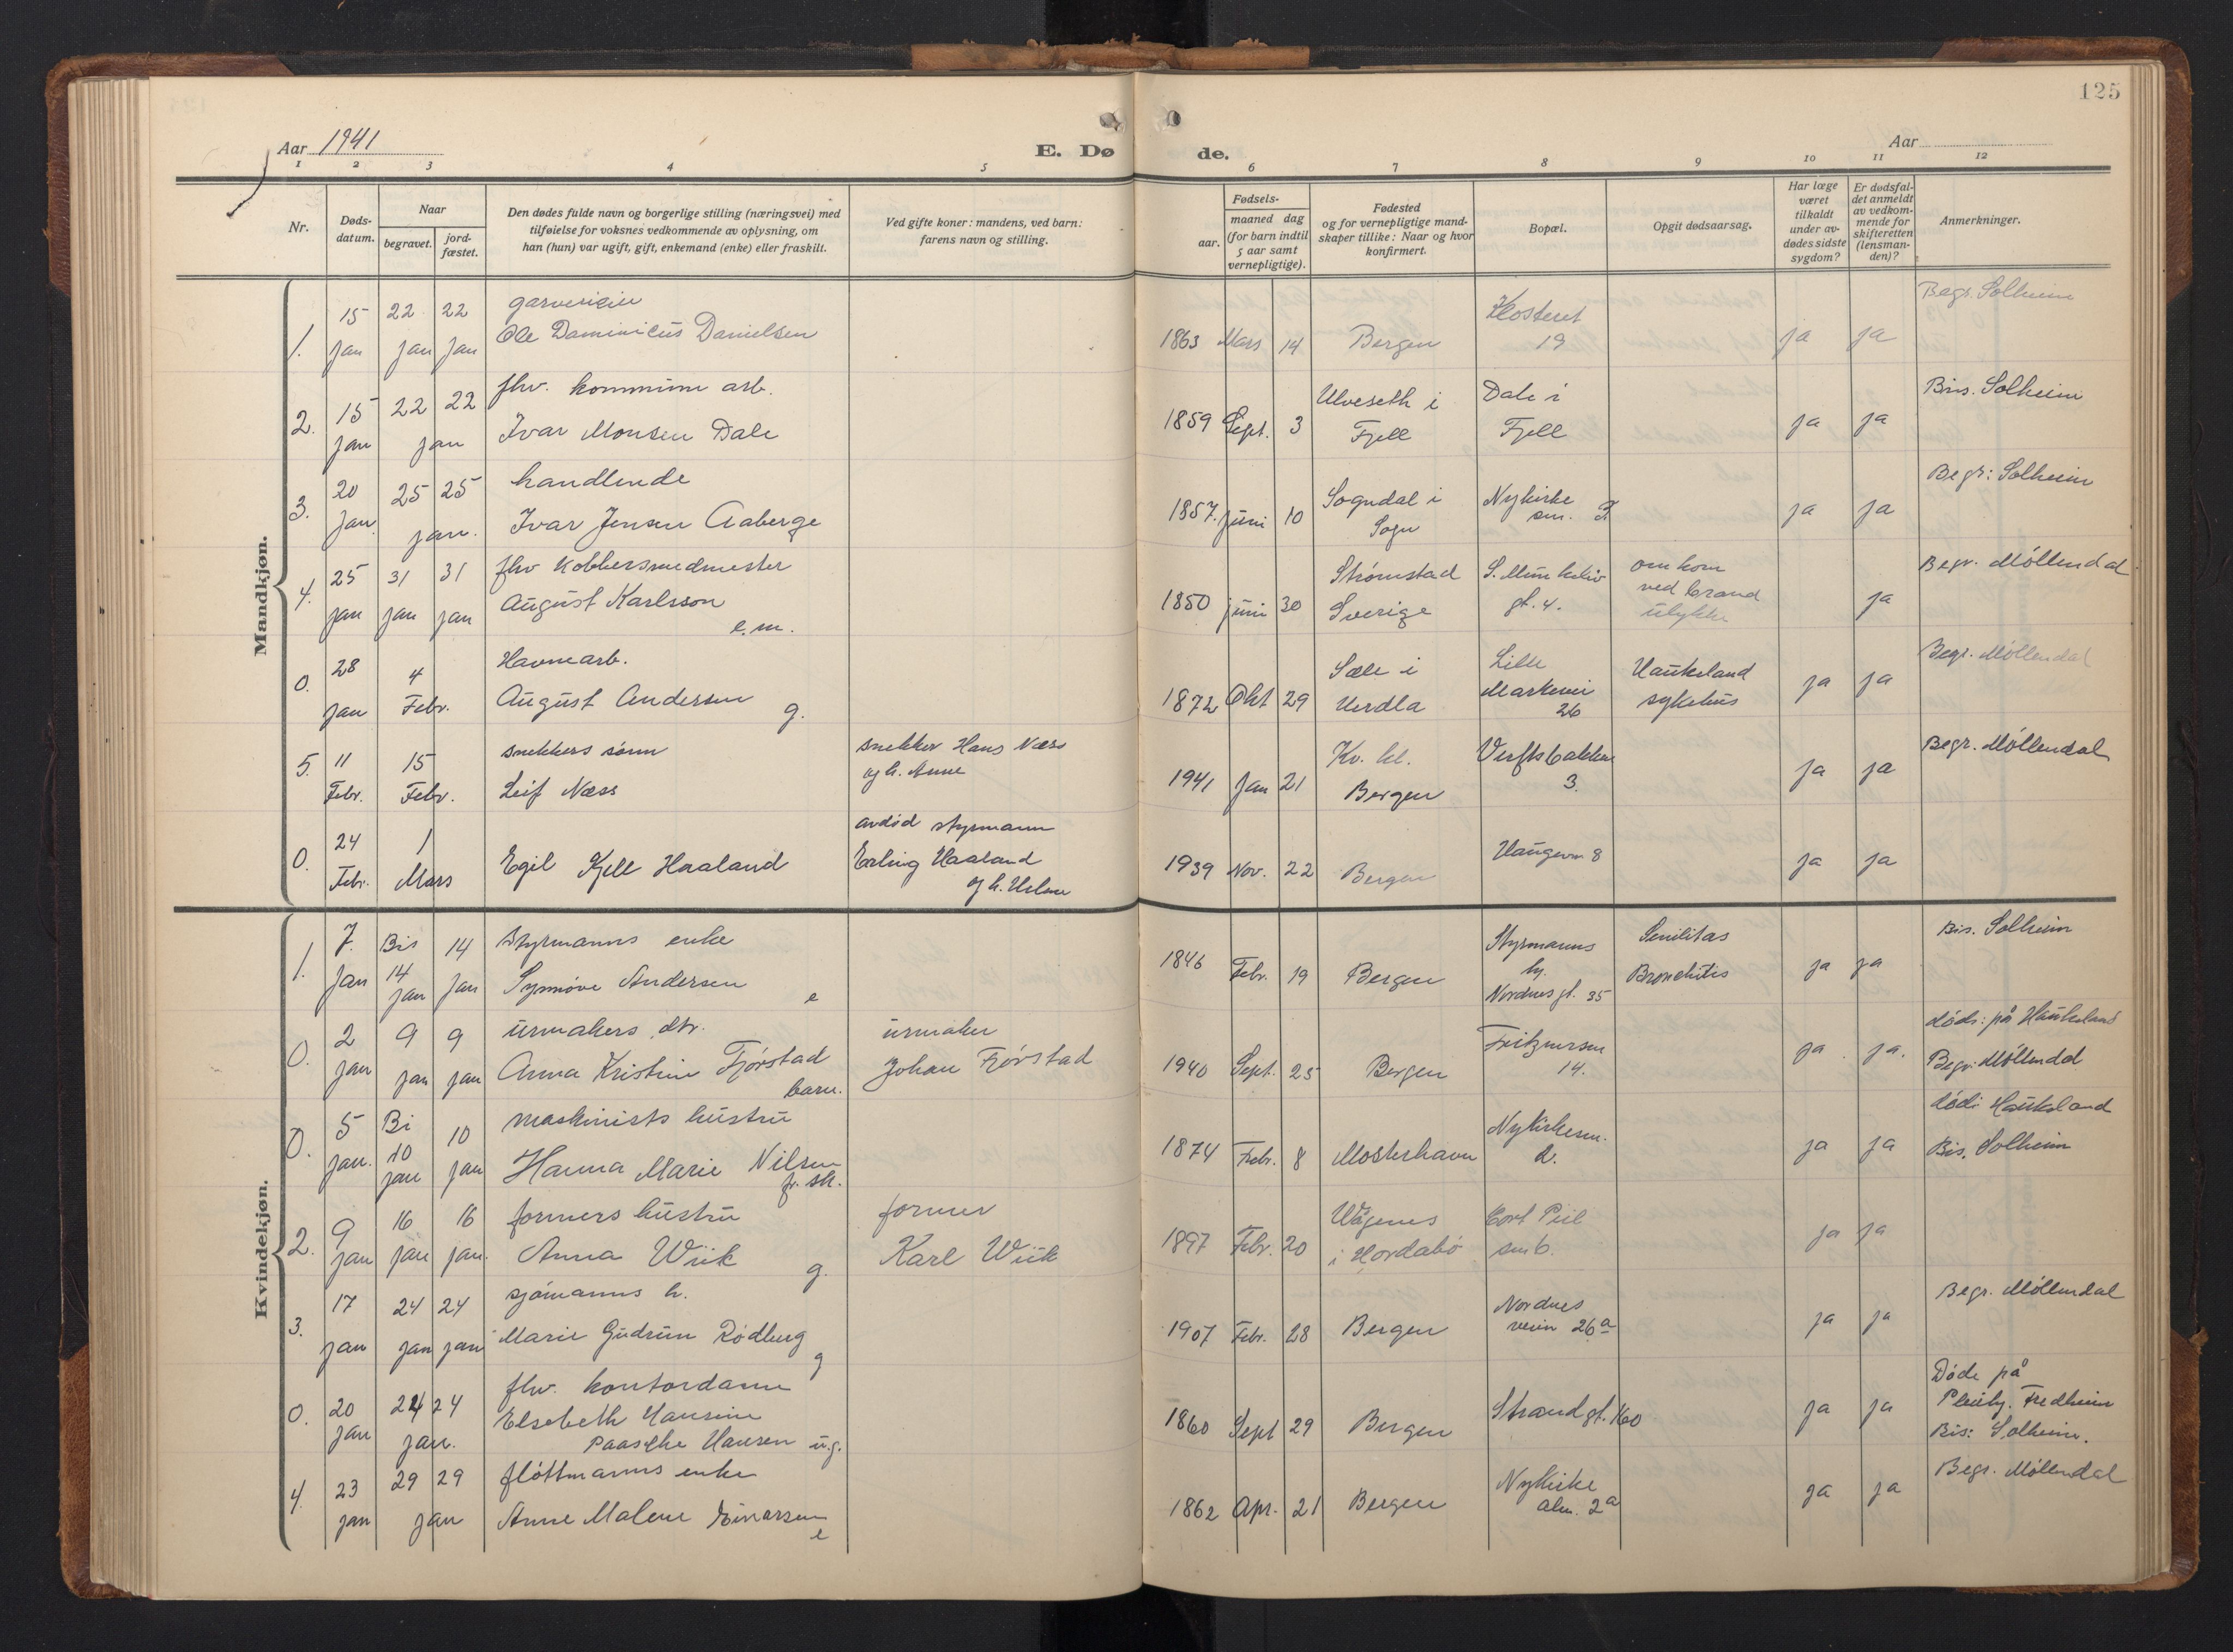 125
Aar 1941
E. Dø
de.
Aar
1 2 3 4 5 6 7 8 9 10 11 12
Nr.
Døds-
datum.
Naar
begravet.
jord-
fæstet.
Den dødes fulde navn og borgerlige stilling (næringsvei) med
tilføielse for voksnes vedkommende av oplysning, om
han (hun) var ugift, gift, enkemand (enke) eller fraskilt.
Ved gifte koner: mandens, ved barn:
farens navn og stilling.
Fødsels-
aar.
maaned dag
(for barn indtil
5 aar samt
vernepligtige).
Fødested
og for vernepligtige mand-
skaper tillike: Naar og hvor
konfirmert.
Bopæl.
Opgit dødsaarsag.
Har læge
været
tilkaldt
under av-
dødes sidste
sygdom?
Er dødsfal-
det anmeldt
av vedkom-
mende for
skifteretten
(lensman-
den)?
Anmerkninger.
Mandkjøn.
1. 15 jan 22 jan 22 jan
garverieier
Ole Dominicus Danielsen
1863 Mars 14 Bergen
Klosteret
19
ja ja
Begr. Solheim
2. 15 jan 22 22 jan
fhv. kommune arb.
Ivar Monsen Dale
1859 Sept. 3
Ulveseth i
Fjell
Dale i
Fjell
ja ja
Bis. Solheim
3. 20 jan. 25 25 jan.
handlende
Ivar Jensen Aaberge
1857. juni 10
Sogndal i
Sogn
Nykirke
sm. 3
ja ja
Begr: Solheim
4. 25 jan 31 jan 31 jan
fhv kobbersmedmester
August Karlsson
e.m.
1850 juni 30
Strømstad
Sverige
gt. 4.
omkom
ved brand
ulykke
ja
Begr. Møllendal
0. 28 jan 4 Febr.
Havnearb.
August Andersen g.
1872 Okt 29
Sæle i
Herdla
Lille
Markevei
26
Haukeland
sykehus
ja ja
Begr. Møllendal
5. 11 Febr. 15 Febr.
snekkers sønn
Leif Næss
snekker Hans Næss
og h. Anne
1941 Jan 21
Kv. kl.
Bergen
Verftsbakken
3.
ja ja
Begr. Møllendal
0. 24 Febr. 1 Mars
Egil Kjell Haaland
avdød styrmann
Erling Haaland
og h. Helene
1939 Nov. 22 Bergen
Haugevn 8
ja ja
Kvindekjøn.
1. 7. jan Bis 14 jan 14 jan
styrmanns enke
Synnøve Andersen e
1846 Febr. 19 Bergen
Styrmanns
hj.
Nordnesgt. 35
Senilitas
Bronchitis
ja ja
Bis. Solheim
0. 2 jan 9 jan 9 jan
urmakers dtr.
Anna Kristine Fjørstad
barn.
urmaker
Johan Fjørstad
1940 Sept. 25 Bergen
Fritznersm
14.
ja ja.
døds: på Haukeland
Begr. Møllendal
0. 5 jan. Bi 10 jan 10 jan
maskinists hustru
Hanna Marie Nilsen
fr. sk.
1874 Febr. 8 Mosterhavn
Nykirkesm.
2.
ja ja
død: Haukeland
Bis. Solheim
2. 9 jan 16 jan 16 jan.
formers hustru
Anna Wiik g.
former
Karl Wiik
1897 Febr. 20
Wågenes
i Hordabø
Cort Piil
sm 6.
ja ja
3. 17 jan 24 jan 24 jan
sjømanns h.
Marie Gudrun Rødberg
g
1907 Febr. 28 Bergen
Nordnes
veien 26a
ja ja
Begr. Møllendal
0. 20 jan 24 24 jan.
fhv. kontordame
Elsebeth Hansine
Paasche Hansen u.g.
1860 Sept 29 Bergen
Strandgt. 160
ja ja
Døde på
Pleiehj. Fredheim
Bis: Solheim.
4. 23 jan 29 29 jan
fløttmanns enke
Anne Malene Einarsen
e
1862 Apr. 21 Bergen
Nykirke
alm. 2a
ja ja
Begr. Møllendal